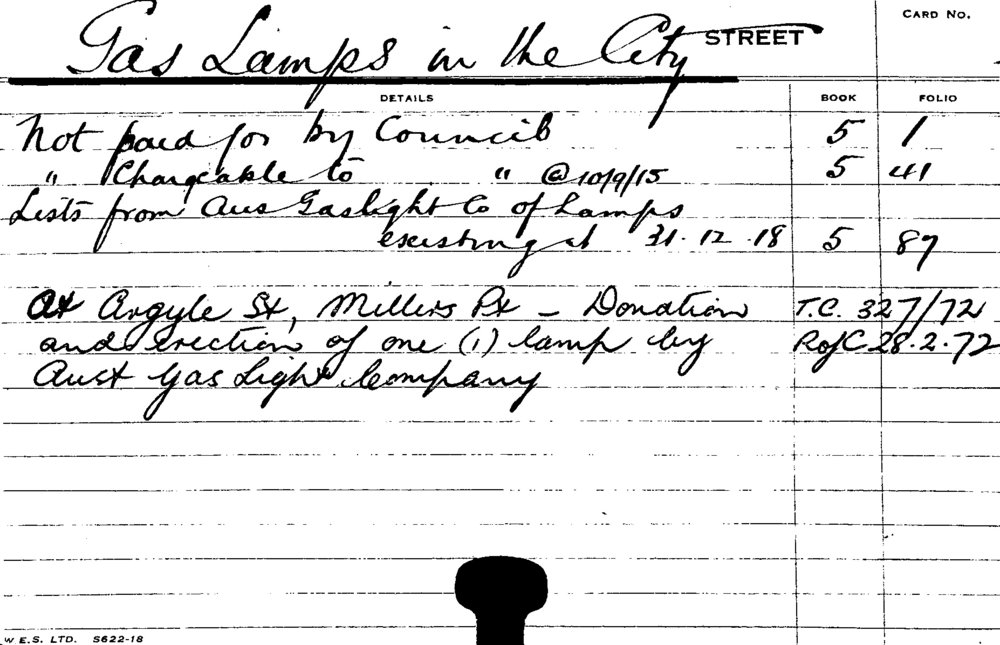 Gas Lamps in the City STREET
CARD NO.
DETAILS BOOK FOLIO
Not paid for by Council 5 1
" Chargeable to " @ 10/9/15 5 41
Lists from Aus Gaslight Co of Lamps
existing at 31.12.18 5 87
At Argyle St, Millers Pt - Donation T.C. 327/72
and erection of one (1) lamp by RofC 28.2.72
Aust Gas Light Company
W E.S. LTD. S622-18